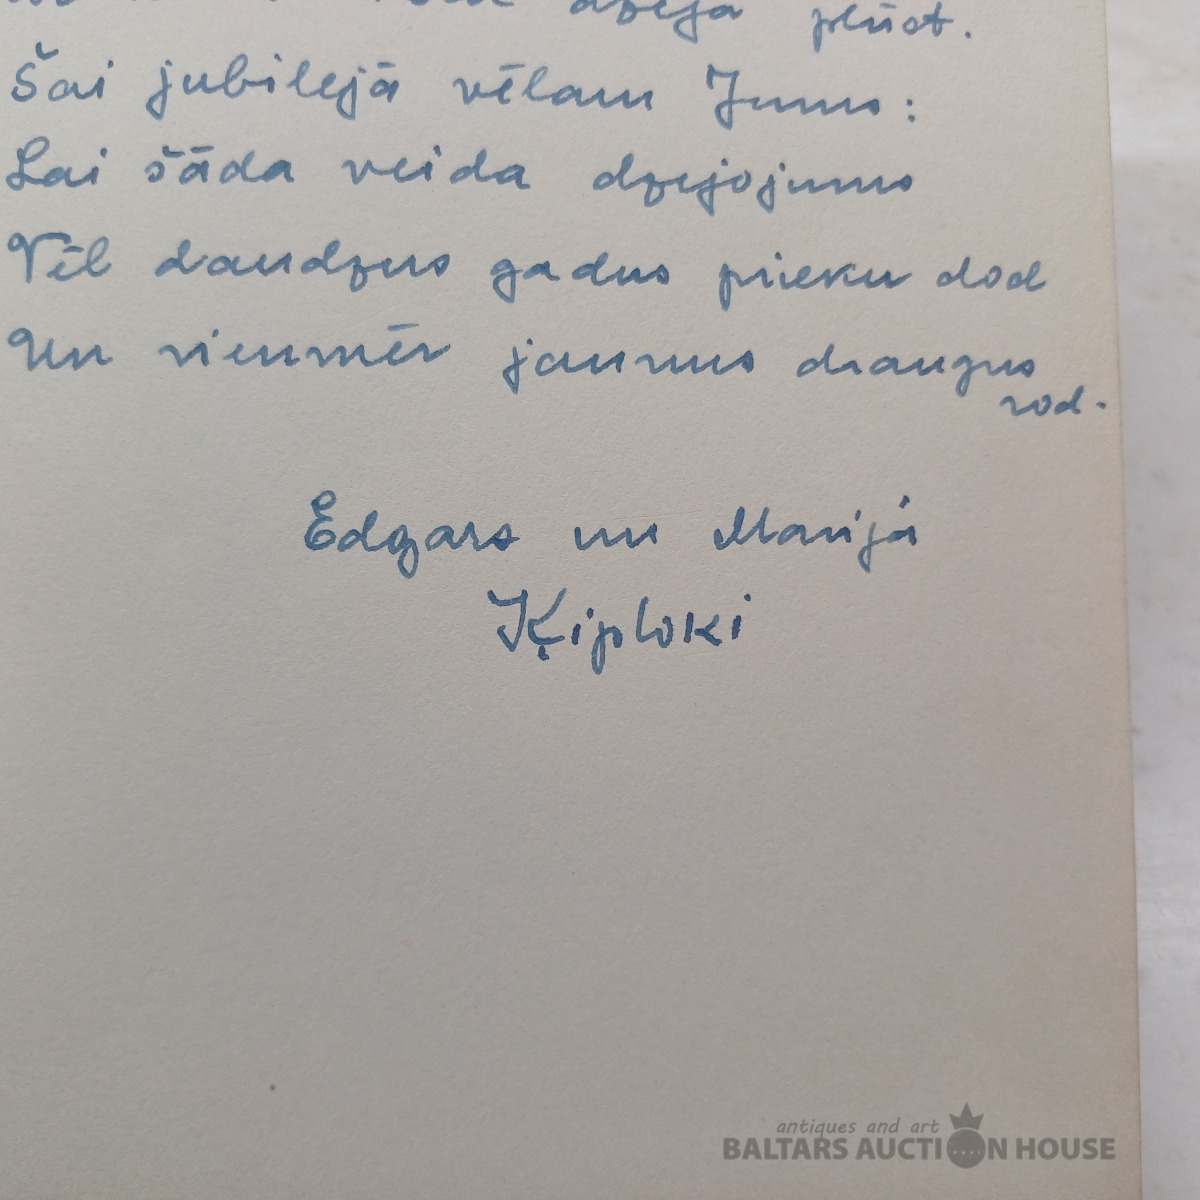 dzeja plūst.
Šai jubilejā vēlam Jums:
Lai šāda veida dzejojums
Vēl daudzus gadus prieku dod
Un vienmēr jaunus draugus
rod.
Edgars un Marija
Ķiploki
antiques and art
BALTARS AUCTION HOUSE